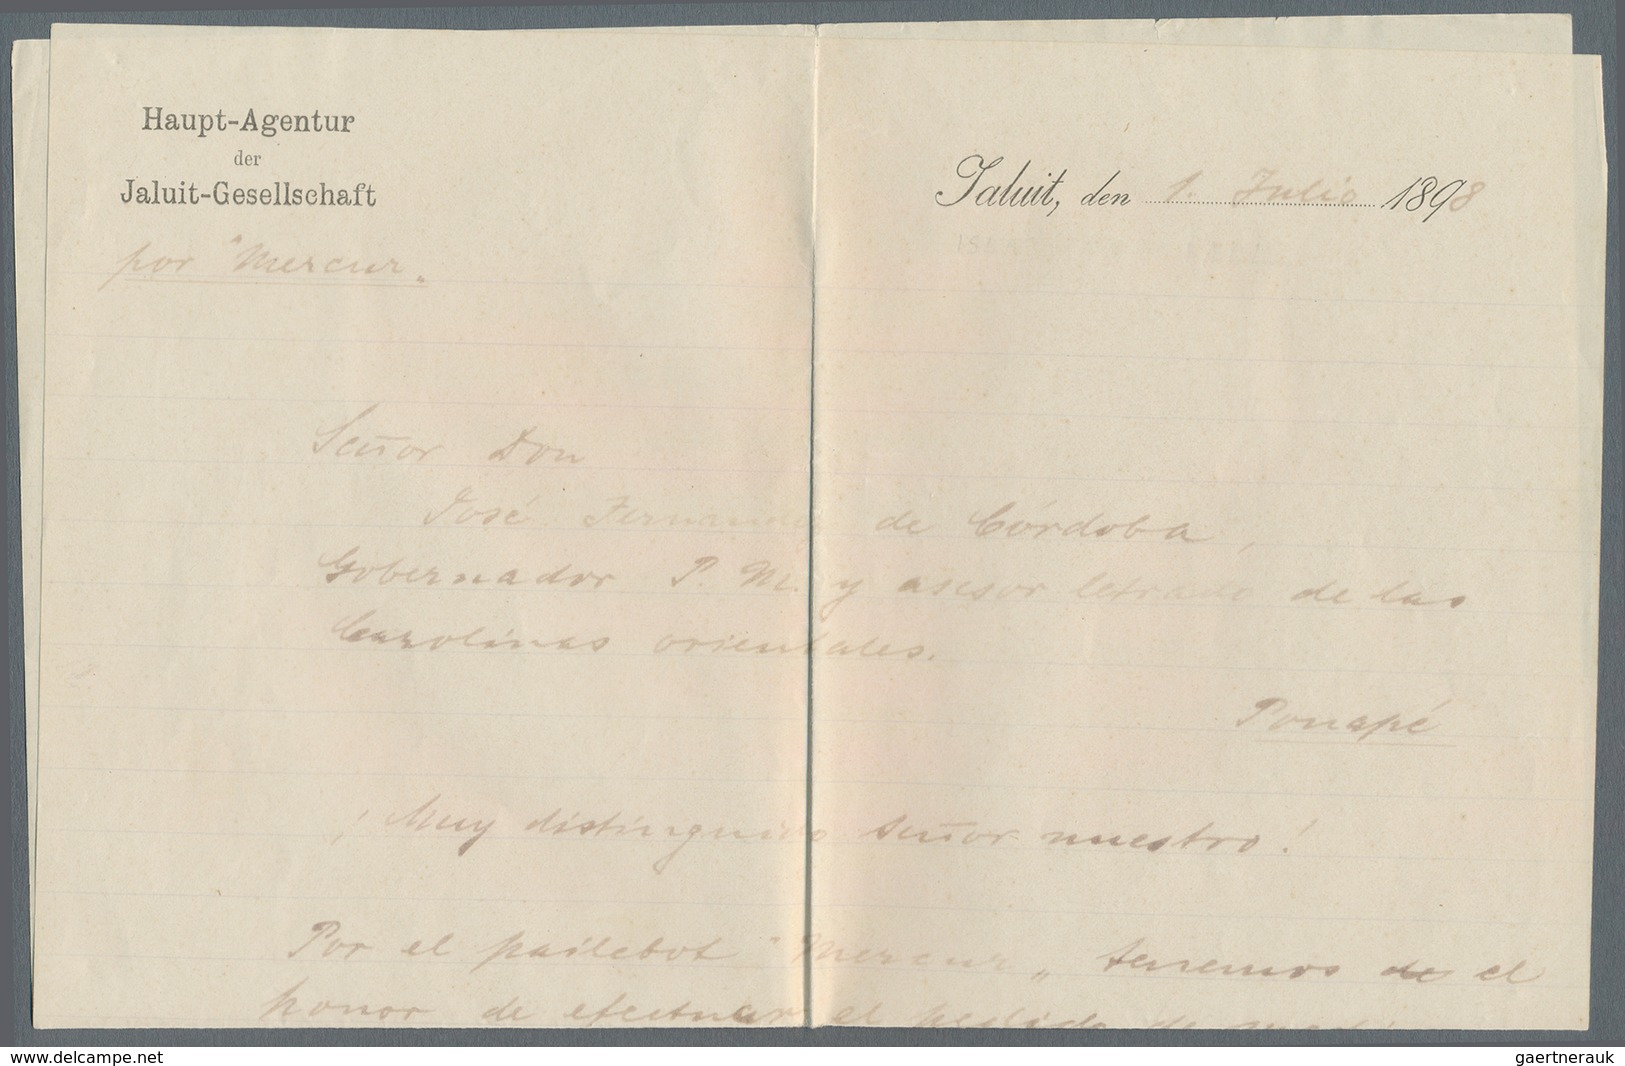 Haupt-Agentur
der
Jaluit-Gesellschaft
Jaluit, den 1. Julio 1898
por "Mercur„
Señor Don
José Fernandez de Córdoba,
Gobernador P. M. y asesor letrado de las
Carolinas orientales.
Ponapé
¡Muy distinguido señor nuestro!
Por el pailebot "Mercur„ tenemos de el
honor de efectuar el pedido de
delcampe.com
gaertnerauk